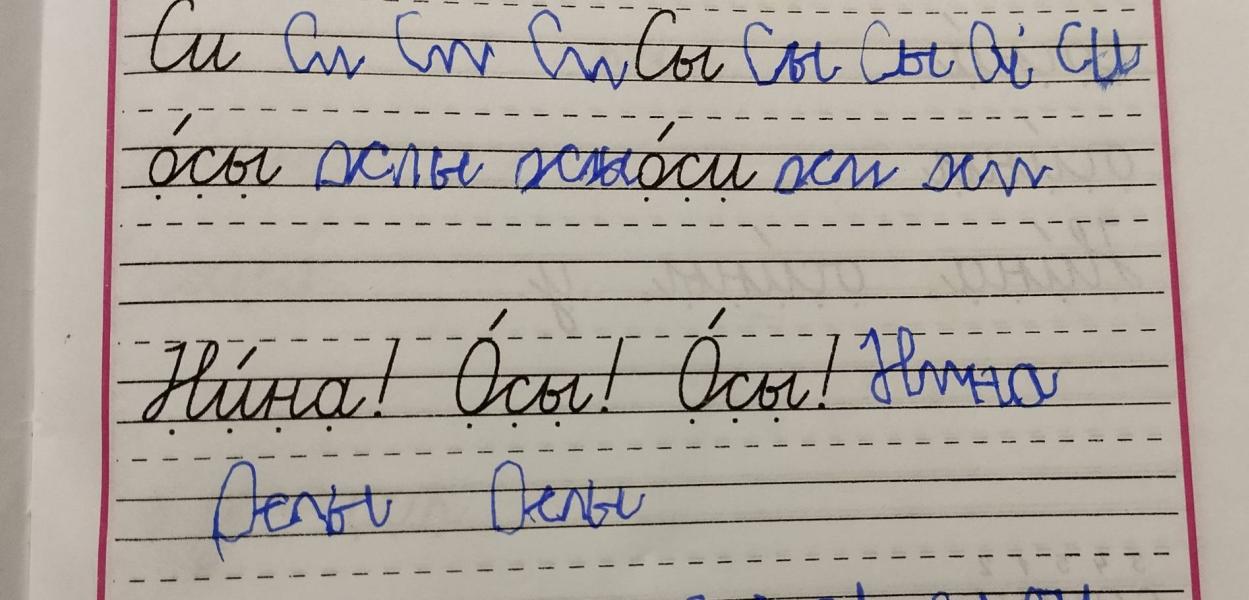 Си Си Си Си Сы Сы Сы Си Сы
о́сы осы осы о́си оси оси
Ни́на! О́сы! О́сы! Нина
Осы Осы